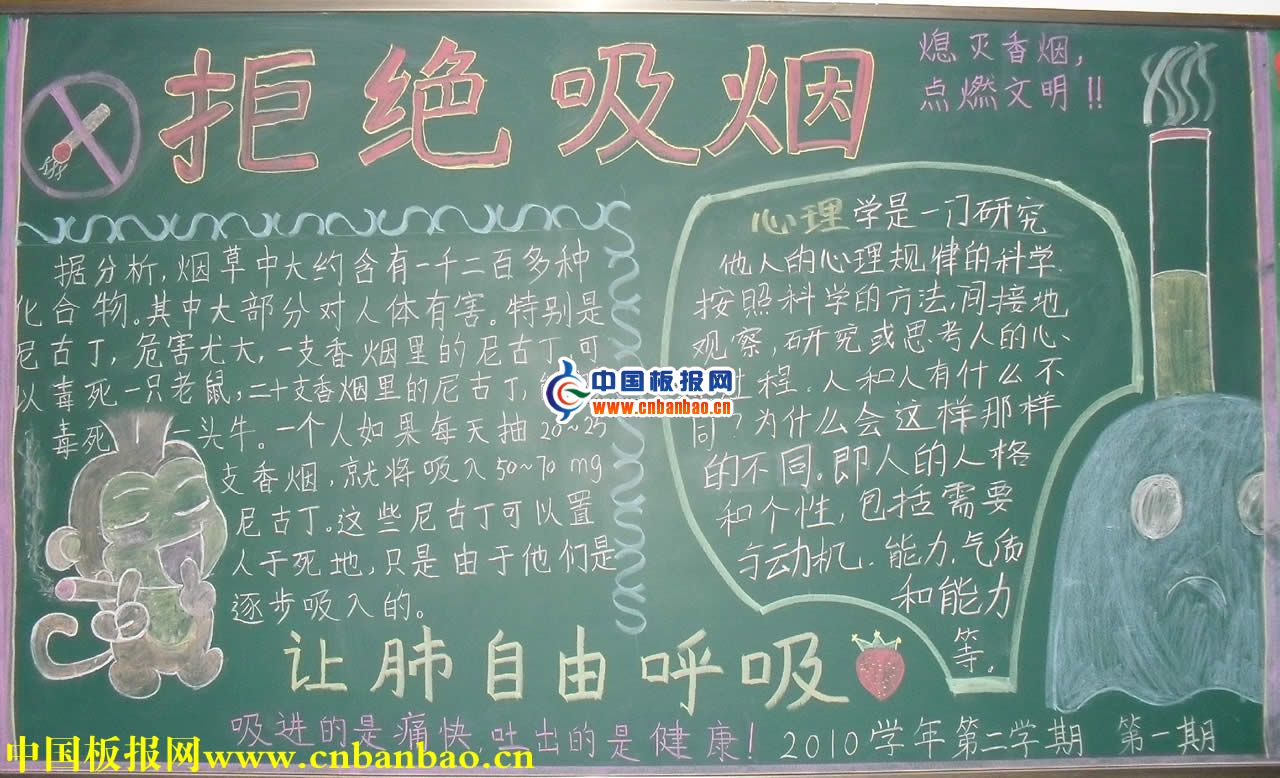 拒绝吸烟
熄灭香烟,
点燃文明!!
据分析,烟草中大约含有一千二百多种
化合物。其中大部分对人体有害。特别是
尼古丁,危害尤大,一支香烟里的尼古丁可
以毒死一只老鼠,二十支香烟里的尼古丁,
毒死一头牛。一个人如果每天抽20~25
支香烟,就将吸入50~70mg
尼古丁。这些尼古丁可以置
人于死地,只是由于他们是
逐步吸入的。
心理学是一门研究
他人的心理规律的科学.
按照科学的方法,间接地
观察,研究或思考人的心
过程.人和人有什么不
同?为什么会这样那样
的不同。即人的人格
和个性,包括需要
与动机.能力,气质
和能力
等。
中国板报网
www.cnbanbao.cn
让肺自由呼吸
吸进的是痛快,吐出的是健康!
2010学年第二学期 第一期
中国板报网www.cnbanbao.cn